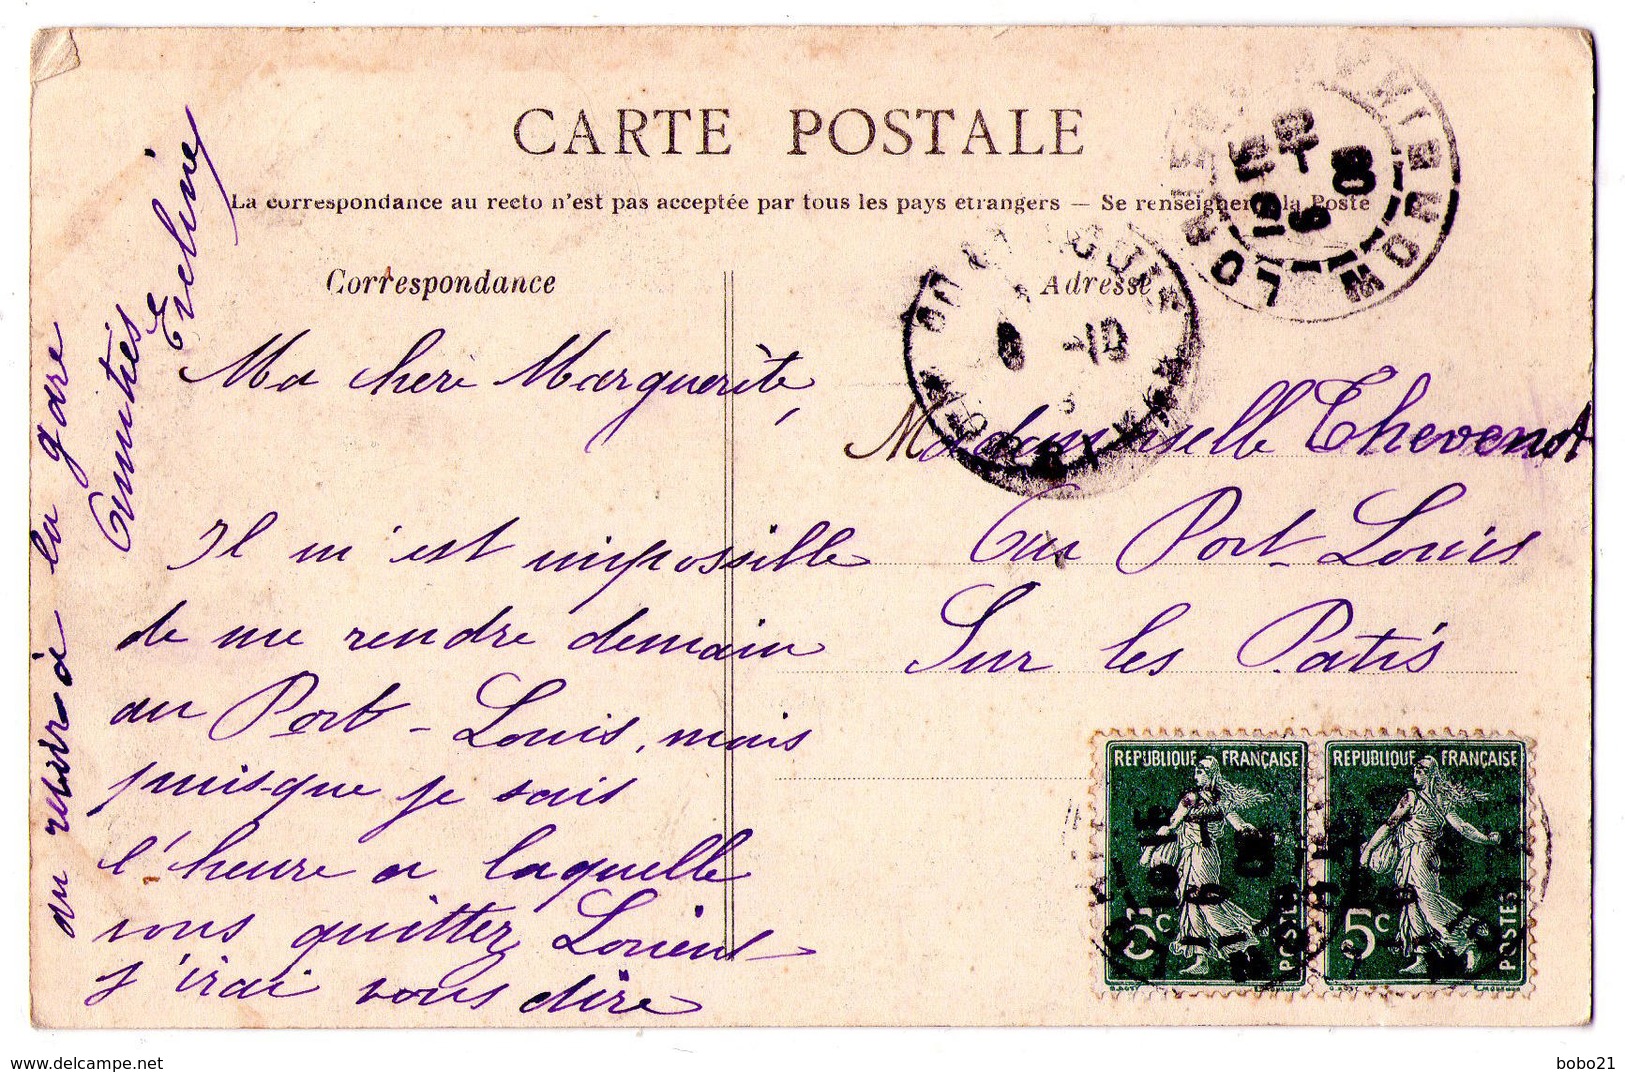 CARTE POSTALE
La correspondance au recto n'est pas acceptée par tous les pays étrangers — Se renseigner à la Poste
Correspondance
Adresse
Ma chère Marguerite,
Il m'est impossible
de me rendre demain
au Port-Louis, mais
puisque je sais
l'heure a laquelle
vous quittez Lorient
j'irai vous dire
au revoir à la gare
Amitiés
Eveline
Mademoiselle Thevenot
Au Port-Louis
Sur les Patis
LORIENT MORBIHAN
19 15
9 - 9
08
8 -10
REPUBLIQUE FRANÇAISE
5c
POSTES
REPUBLIQUE FRANÇAISE
5c
POSTES
delcampe.net
bobo21